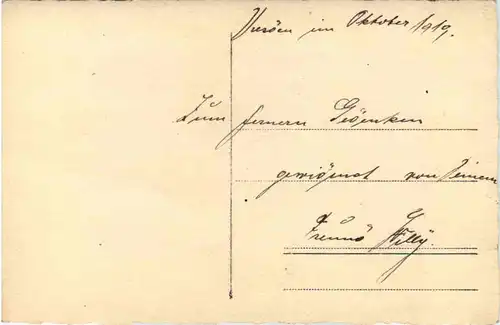 im Oktober 1919.
Zum fernern Gedenken
gewidmet von Deinem
Freund Willÿ.